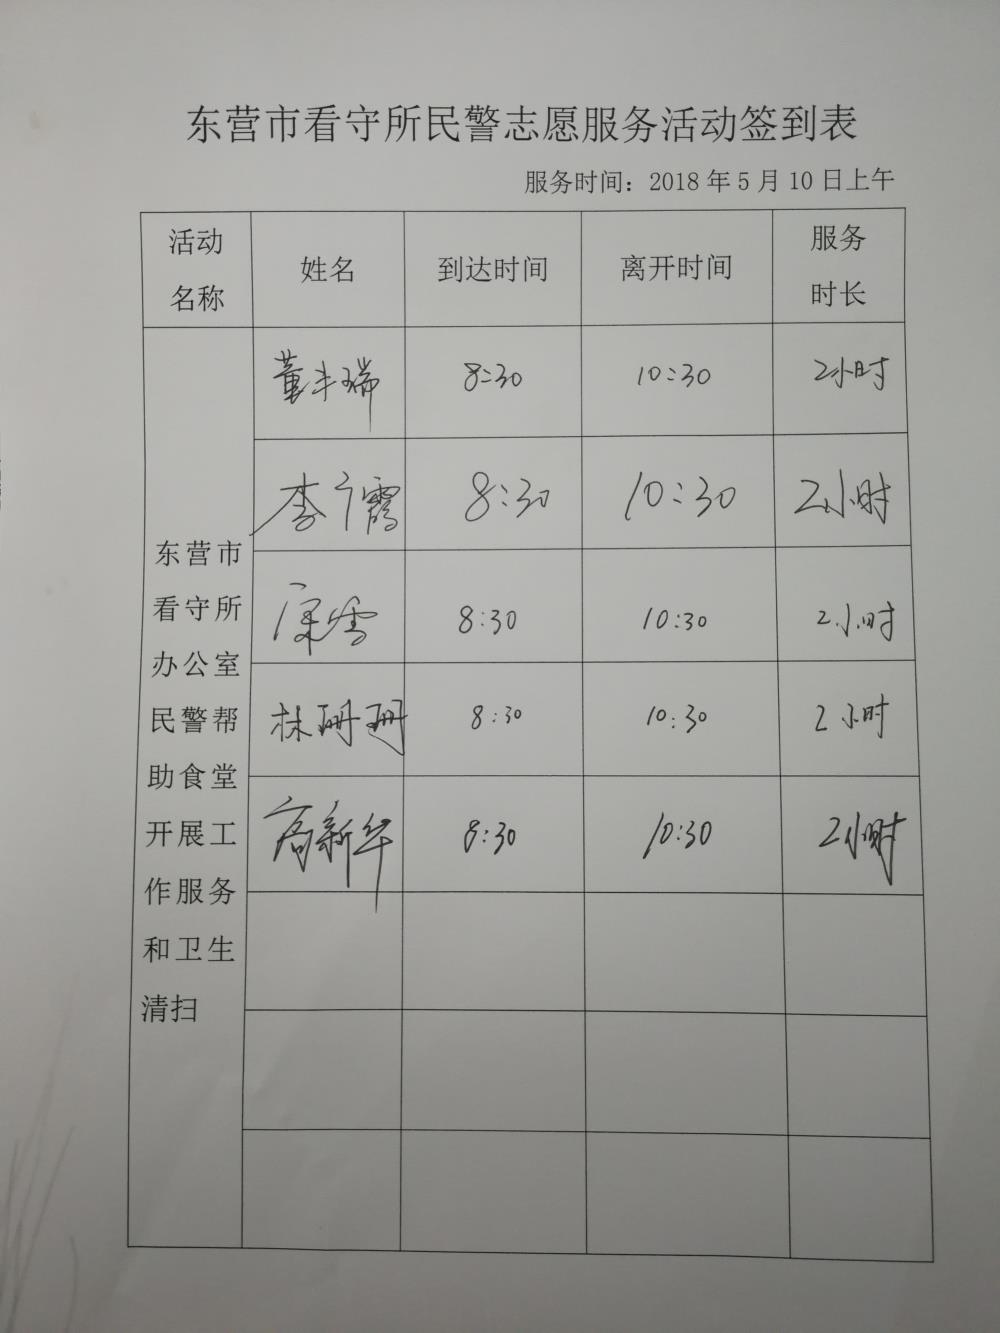 东营市看守所民警志愿服务活动签到表
服务时间：2018年5月10日上午
活动
名称
姓名
到达时间
离开时间
服务
时长
东营市
看守所
办公室
民警帮
助食堂
开展工
作服务
和卫生
清扫
董丰瑞 8:30 10:30 2小时
李 霞 8:30 10:30 2小时
8:30 10:30 2小时
林珊珊 8:30 10:30 2小时
高新华 8:30 10:30 2小时